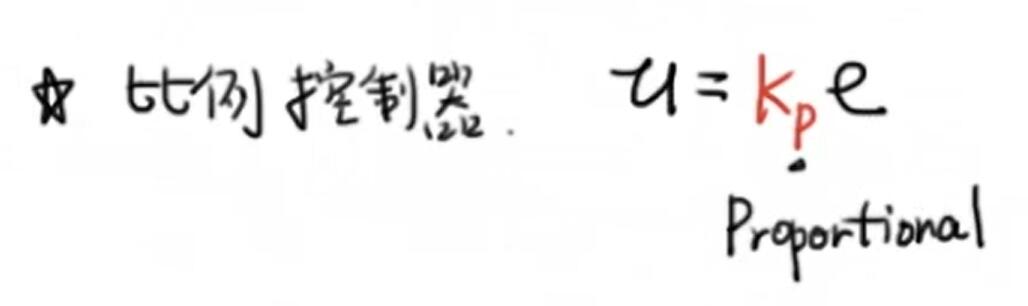 ☆ 比例控制器. u = kₚe
Proportional